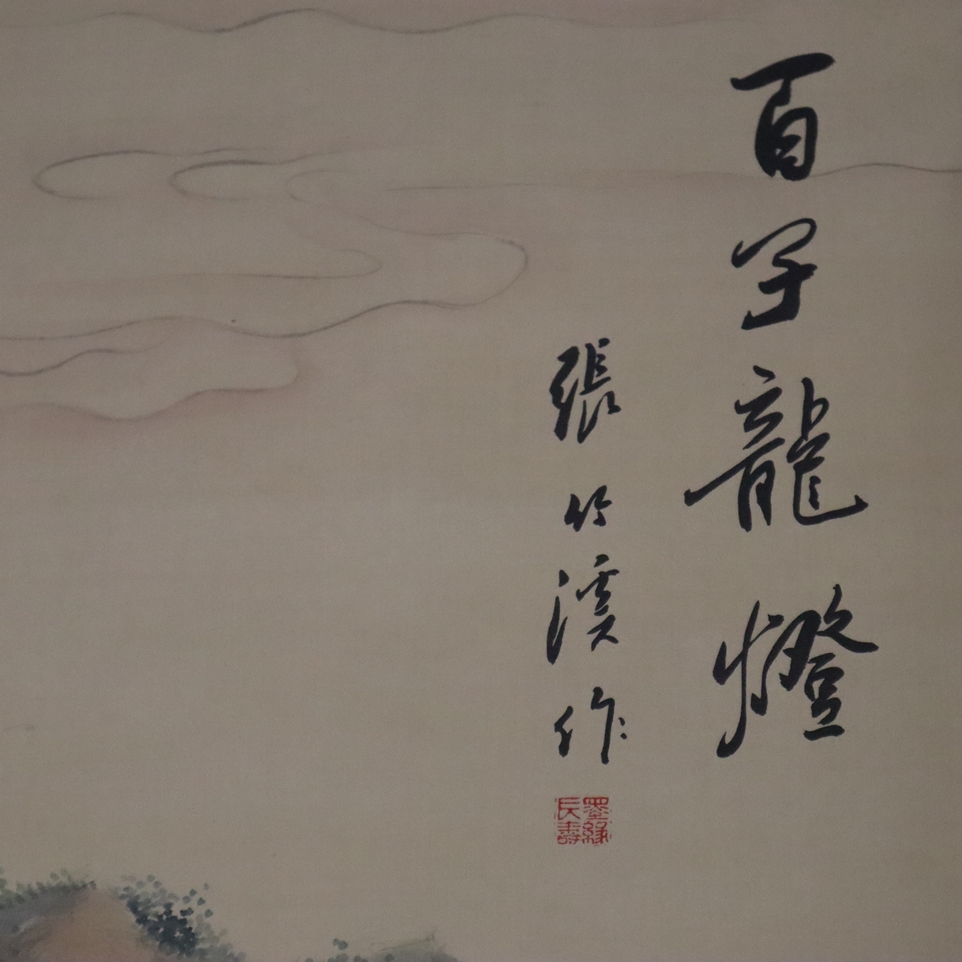 百子龍燈
張竹溪作
墨緣
長壽